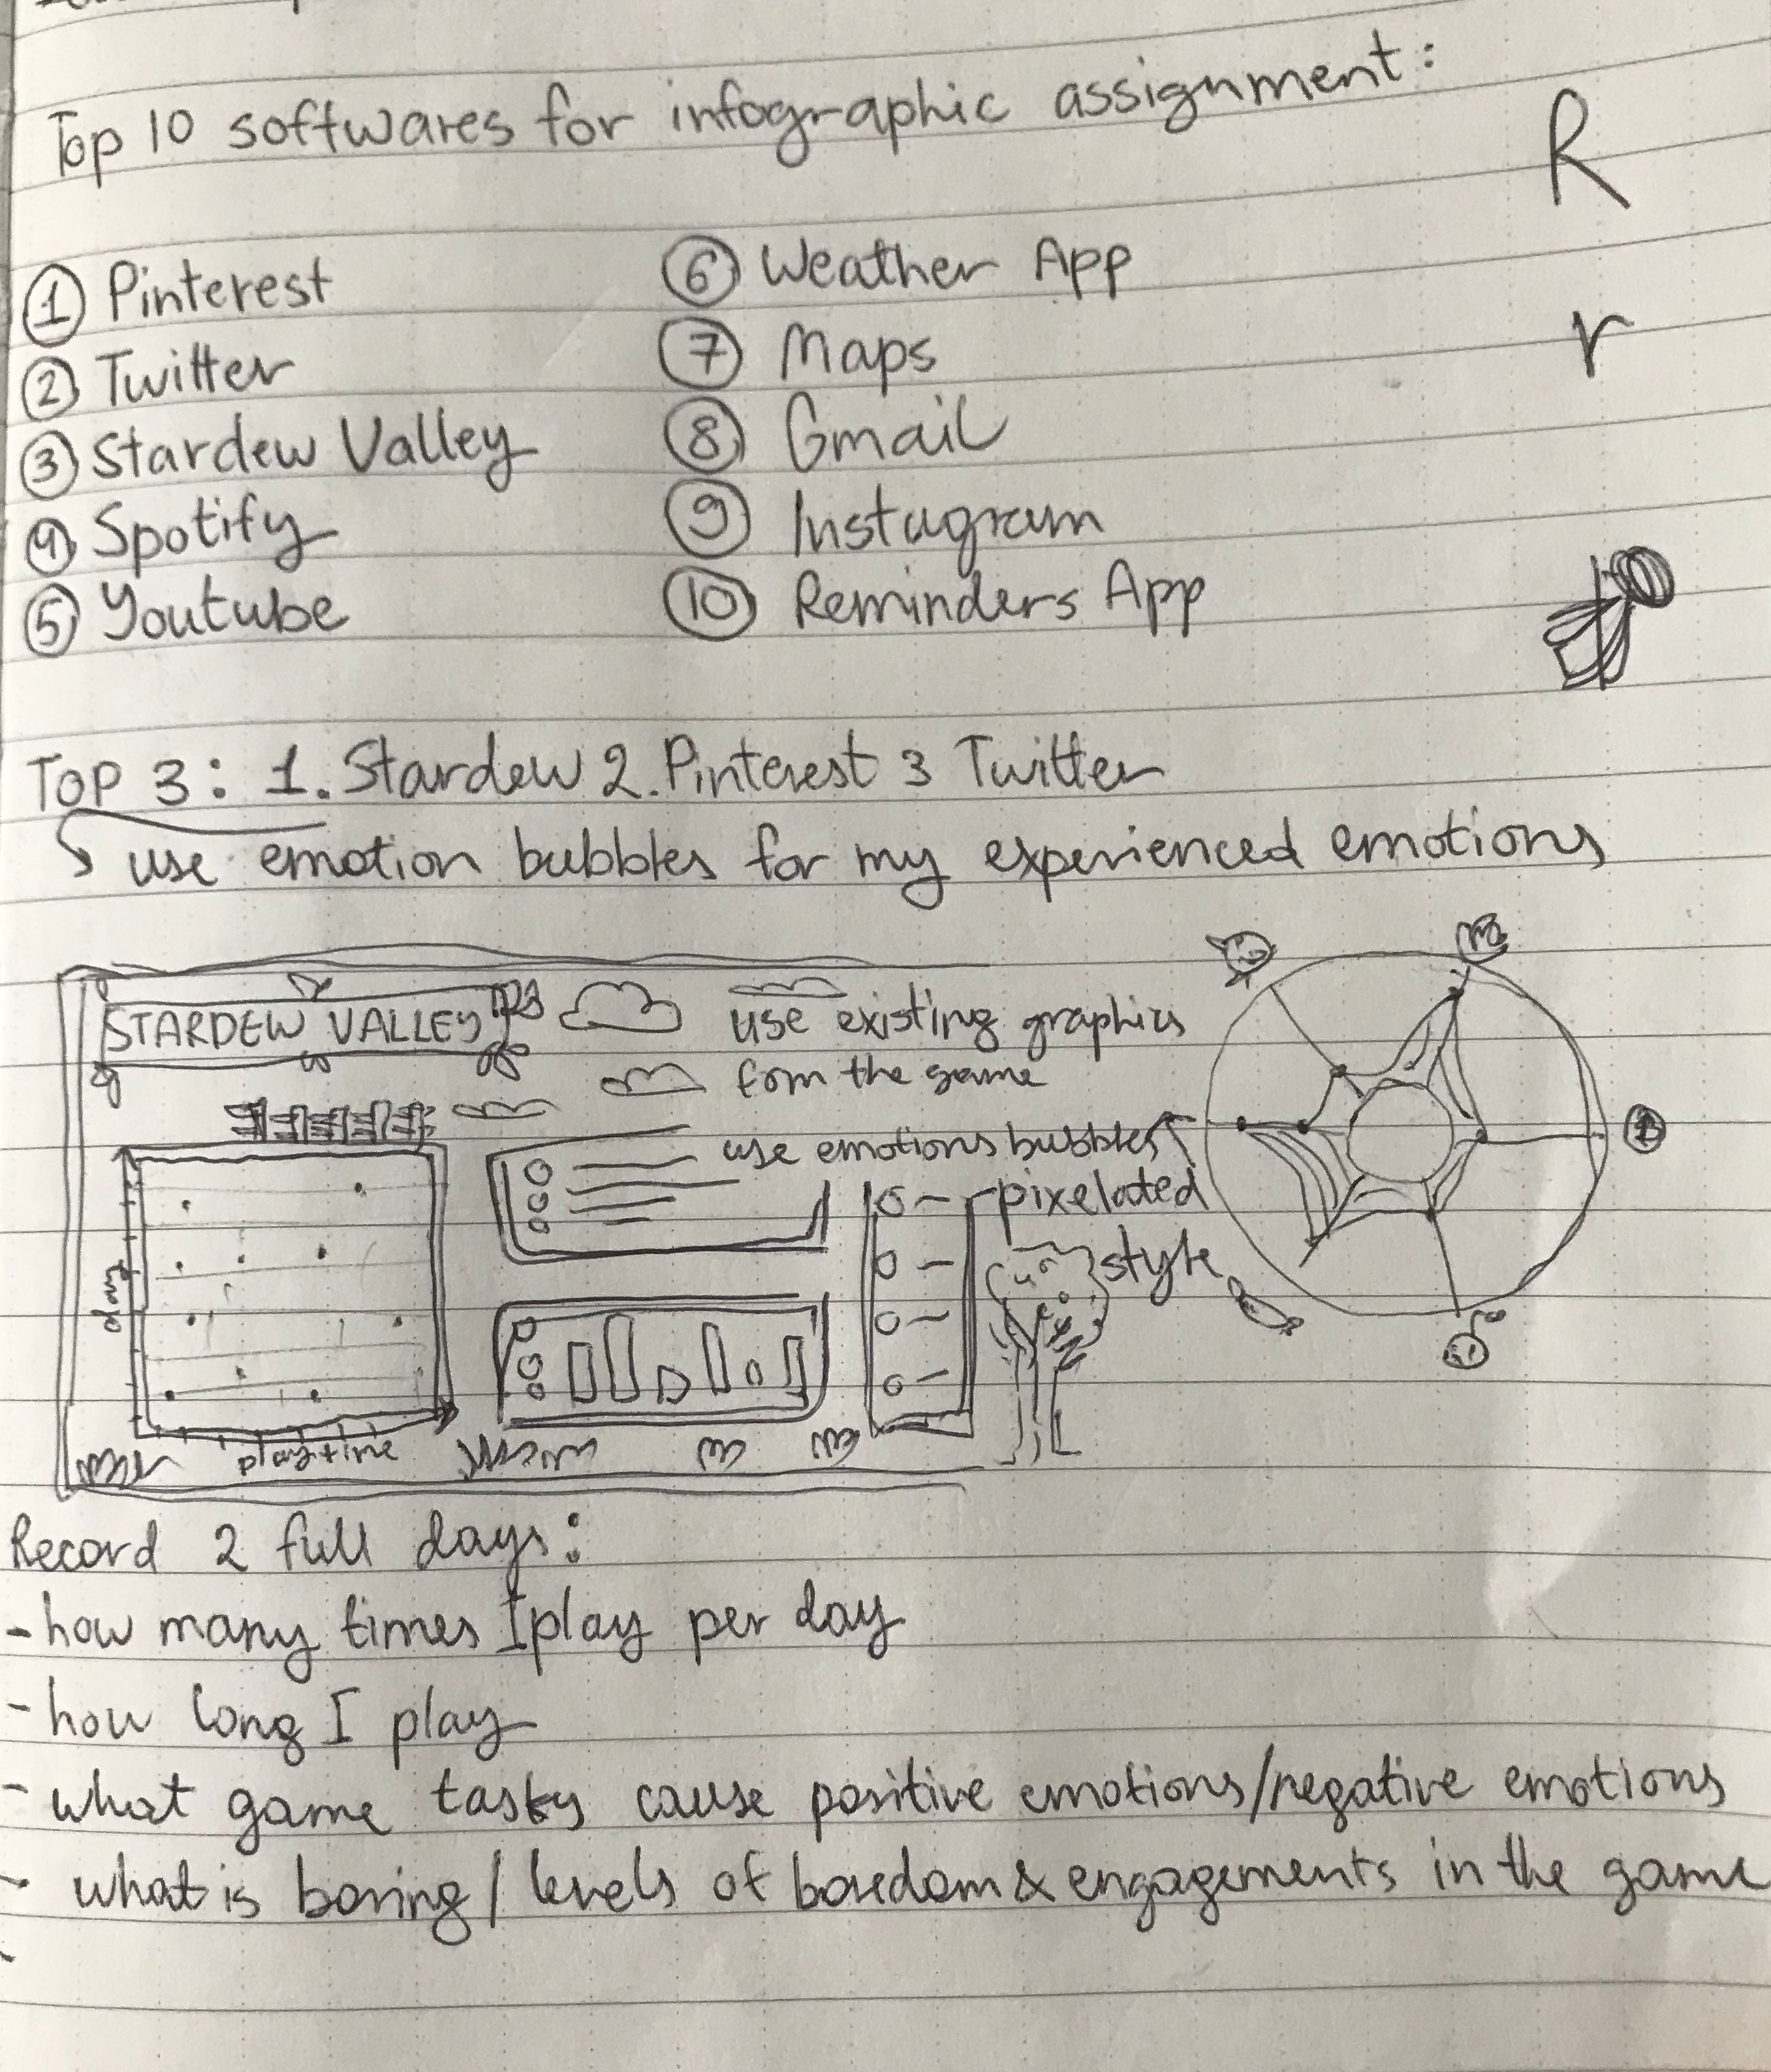 Top 10 softwares for infographic assignment:
R
① Pinterest
② Twitter
③ Stardew Valley
④ Spotify
⑤ Youtube
⑥ Weather App
⑦ Maps
⑧ Gmail
⑨ Instagram
⑩ Reminders App
r
TOP 3: 1. Stardew 2. Pinterest 3 Twitter
use emotion bubbles for my experienced emotions
STARDEW VALLEY
use existing graphics
from the game
use emotions bubbles
pixelated
style
day
playtime
Record 2 full days:
- how many times I play per day
- how long I play
- what game tasks cause positive emotions/negative emotions
- what is boring/levels of boredom & engagements in the game